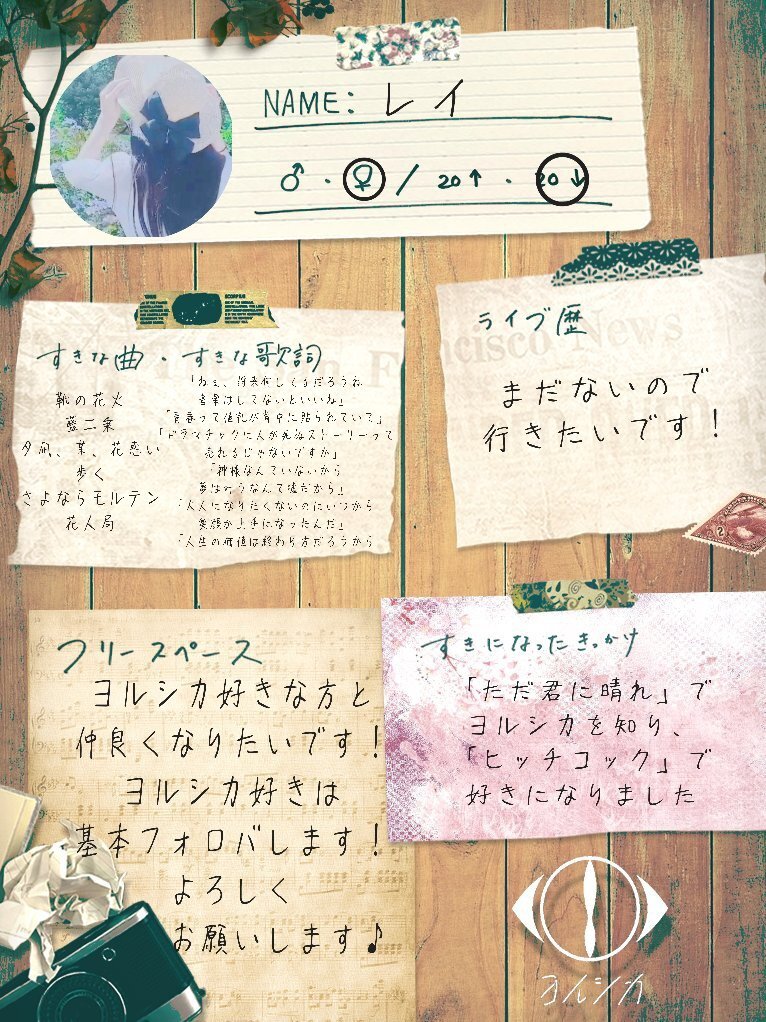 NAME: レイ
♂・♀/20↑・20↓
すきな曲・すきな歌詞
靴の花火
藍二乗
夕凪、某、花惑い
歩く
さよならモルテン
花人局
音楽はしてないといいね」
「青春って値札が背中に貼られていて」
「ドラマチックに人が死ぬストーリーって
売れるじゃないですか」
「神様なんていないから
夢は叶うなんて嘘だから」
「大人になりたくないのにいつから
笑顔が上手になったんだ」
「人生の価値は終わり方だろうから
ライブ歴
まだないので
行きたいです!
フリースペース
ヨルシカ好きな方と
仲良くなりたいです!
ヨルシカ好きは
基本フォロバします!
よろしく
お願いします♪
すきになったきっかけ
「ただ君に晴れ」で
ヨルシカを知り、
「ヒッチコック」で
好きになりました
ヨルシカ